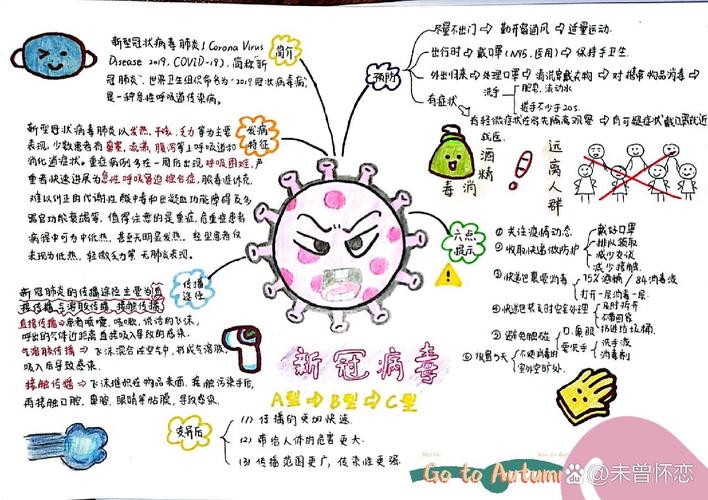 新型冠状病毒肺炎(Corona Virus
Disease 2019, COVID-19), 简称"新
冠肺炎", 世界卫生组织命名为"2019冠状病毒病",
是一种急性呼吸道传染病。
简介
新型冠状病毒肺炎以发热、干咳、乏力等为主要
表现, 少数患者有鼻塞、流涕、腹泻等上呼吸道和
消化道症状。重症病例多在一周后出现呼吸困难, 严
重者快速进展为急性呼吸窘迫综合症, 脓毒症休克,
难以纠正的代谢性酸中毒和出凝血功能障碍及多
器官功能衰竭等。值得注意的是重症, 危重症患者
病程中可为中低热, 甚至无明显发热。轻型患者仅
表现为低热, 轻微乏力等 无肺炎表现。
发病
特征
新冠肺炎的传播途径主要为直
接传播, 气溶胶传播, 接触传播
直接传播→患者喷嚏、咳嗽、说话的飞沫,
呼出的气体近距离直接吸入导致的感染。
气溶胶传播→飞沫混合在空气中, 形成气溶胶,
吸入后导致感染。
接触传播→飞沫组织在物品表面, 接触污染手后,
再接触口腔、鼻腔、眼睛等粘膜, 导致感染。
传播
途径
预防
尽量不出门→勤开窗通风→适量运动.
出行时→戴口罩(N95, 医用)→保持手卫生.
外出归来→处理口罩→清洗穿戴衣物→对携带物品消毒
洗手
肥皂, 流动水
搓手不少于20s.
有症状
有轻微症状在家先隔离观察→有可疑症状戴口罩就近
就医.
酒精
消毒
远离人群
六点
提示
① 关注疫情动态
② 收取快递做防护
戴好口罩
排队领取
减少交谈
减少接触.
③ 快递包裹喷消毒
75%酒精/84消毒液
打开一层消毒一层.
④ 快递包装及时安全处理
及时拆开
不带回家
扔进垃圾桶.
⑤ 避免触碰
口.鼻.眼
要洗手
洗手液
消毒剂
新冠病毒
A型⇨B型⇨C型
变异后
(1) 传播的更加快速.
(2) 带给人体的危害更大.
(3) 传播范围更广, 传染性更强.
Go to Autumn
Bai百度 @未曾怀恋